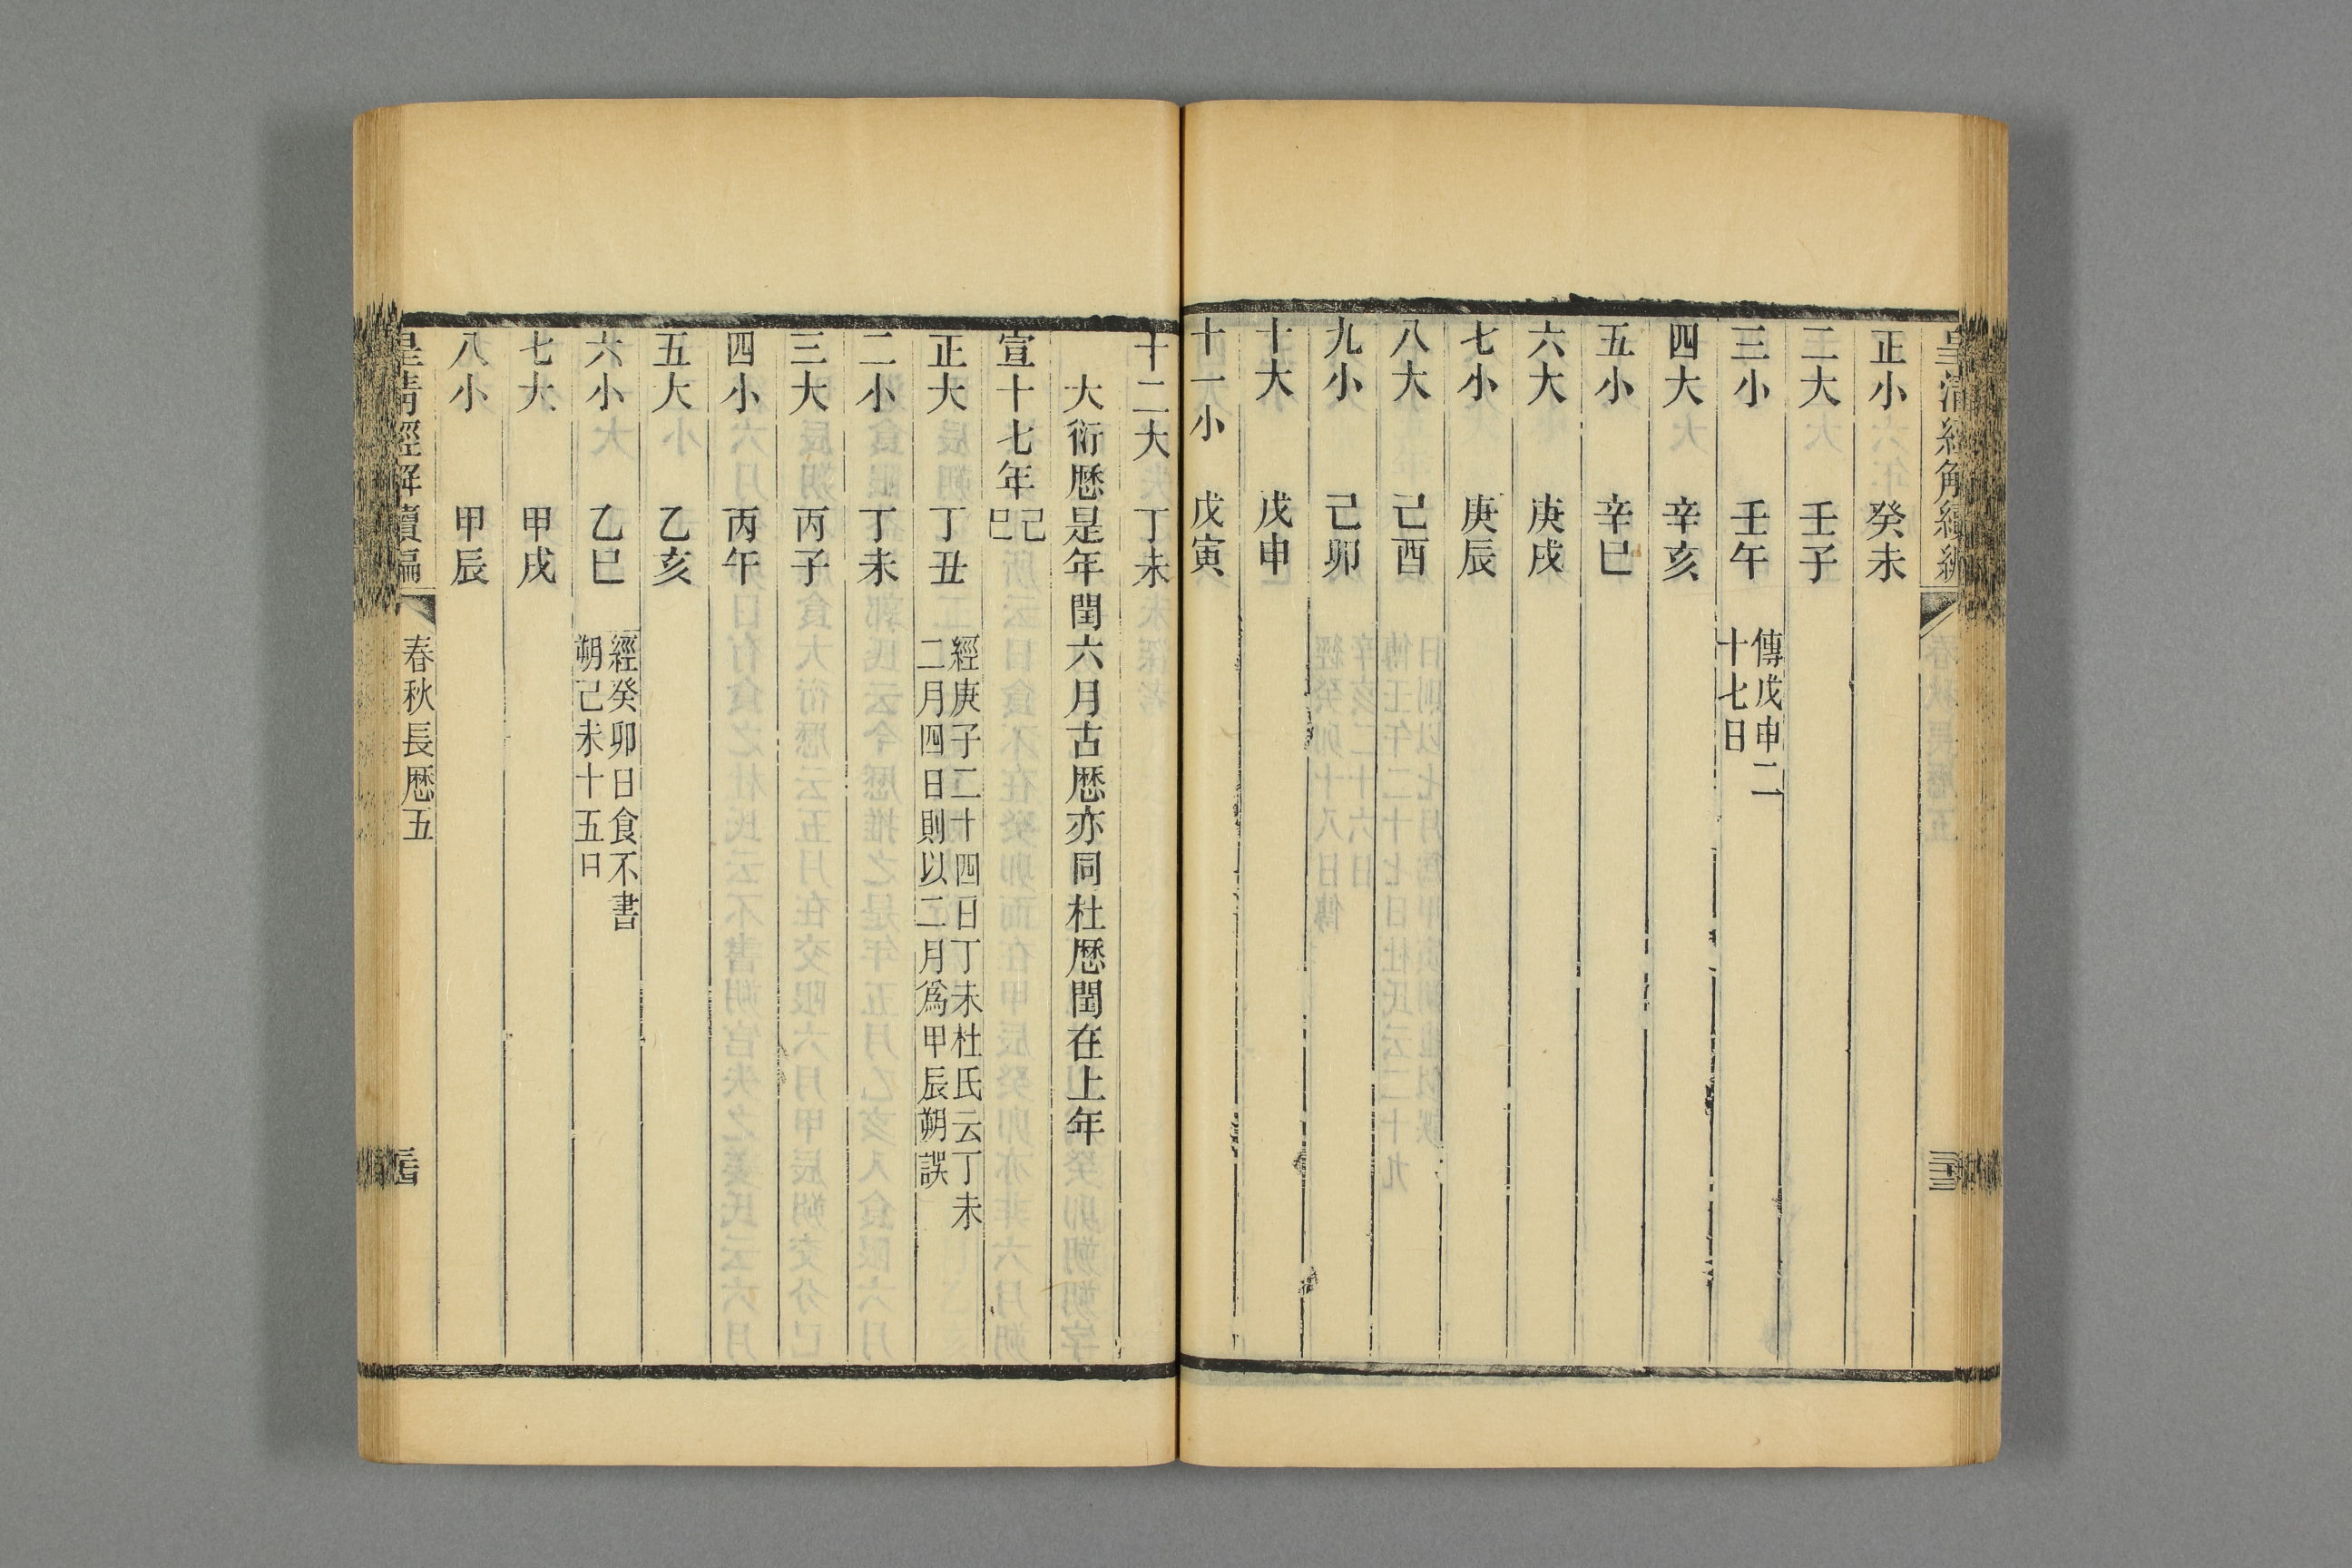 正小　癸未
二大　壬子
三小　壬午　傳戊申二
十七日
四大　辛亥
五小　辛巳
六大　庚戌
七小　庚辰
八大　己酉
九小　己卯
十大　戊申
十一小　戊寅
十二大　丁未
大衍厯是年閏六月古厯亦同杜厯閏在上年
宣十七年己
巳
正大　丁丑　經庚子二十四日丁未杜氏云丁未
二月四日則以二月爲甲辰朔誤
二小　丁未
三大　丙子
四小　丙午
五大　乙亥
六小　乙巳　經癸卯日食不書
朔己未十五日
七大　甲戌
八小　甲辰
皇清經解續編　春秋長厯五